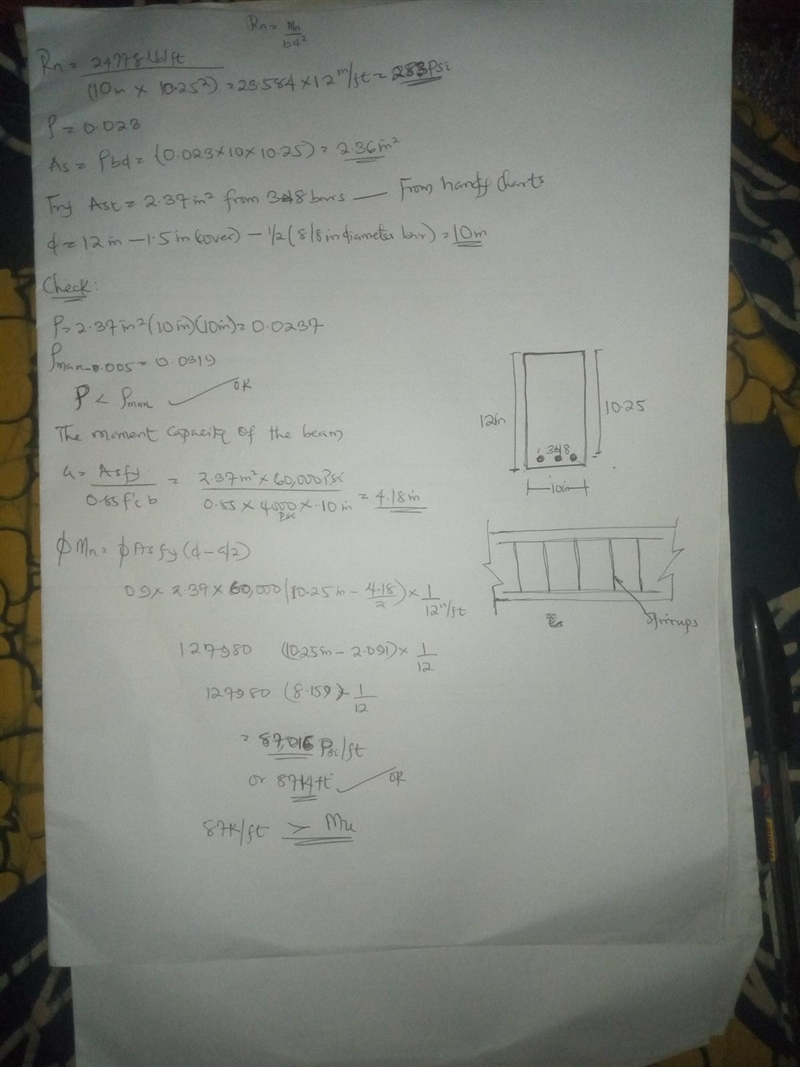 Rn = Mn / bd²
Rn = 24778 lb/ft / (10in × 10.25²) = 23.584 × 12 in/ft = 283 Psi
ρ = 0.023
As = ρbd = (0.023 × 10 × 10.25) = 2.36 in²
Try Ast = 2.37 in² from 3#8 bars — From handy charts
d = 12 in − 1.5 in (cover) − 1/2 (8/8 in diameter bar) = 10 in
Check:
ρ = 2.37 in² (10 in)(10 in) = 0.0237
ρman-0.005 = 0.0319
ρ < ρman ✓ OK
The moment capacity of the beam
a = Asfy / 0.85 f'c b = 2.37 in² × 60,000 Psi / 0.85 × 4000 Psi × 10 in = 4.18 in
φ Mn = φ As fy (d − a/2)
0.9 × 2.37 × 60,000 (10.25 in − 4.18/2) × 1/12 in/ft
127980 (10.25 in − 2.091) × 1/12
127980 (8.159) × 1/12
= 87,016 Psi/ft
or 87 k ft ✓ OK
87k/ft > Mu
12in
10.25
3#8
10in
stirrups